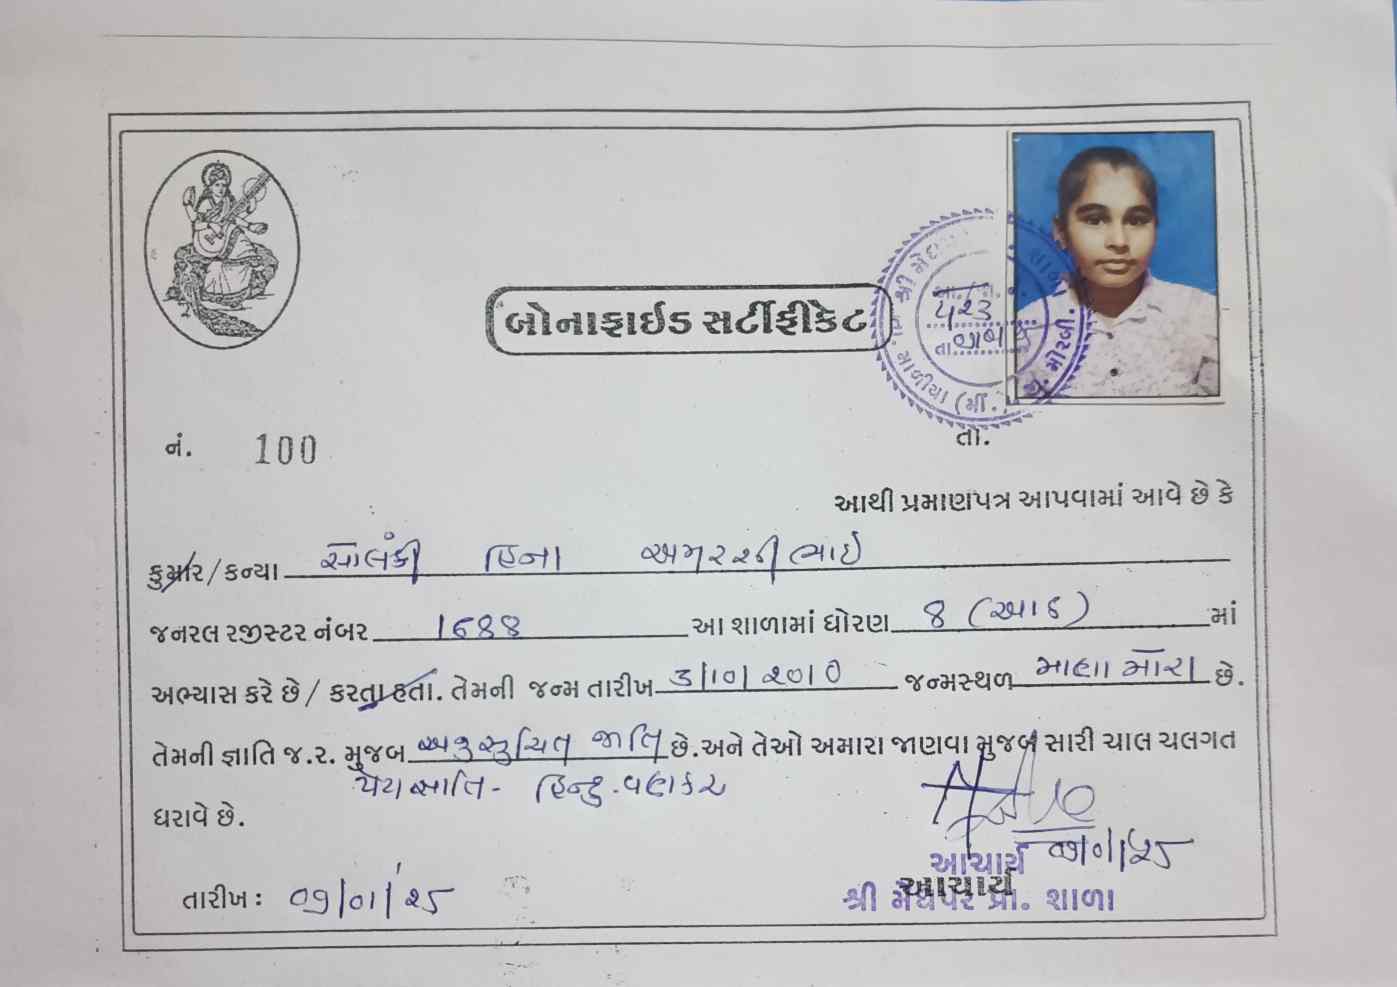 બોનાફાઈડ સર્ટીફીકેટ
નં. 100
તા.
આથી પ્રમાણપત્ર આપવામાં આવે છે કે
કુમાર/કન્યા સોલંકી હિના અમરશીભાઈ
જનરલ રજીસ્ટર નંબર 1688 આ શાળામાં ધોરણ 8 (આઠ) માં
અભ્યાસ કરે છે/ કરતા હતા. તેમની જન્મ તારીખ 3/10/2010 જન્મસ્થળ માણામોરા છે.
તેમની જ્ઞાતિ જ.ર. મુજબ અનુસુચિત જાતિ છે. અને તેઓ અમારા જાણવા મુજબ સારી ચાલ ચલગત
પેટા જ્ઞાતિ - હિન્દુ-વણકર
ધરાવે છે.
આચાર્ય
આચાર્ય
શ્રી મેઘપર પ્રા. શાળા
તારીખ: 09/01/25
09/01/25